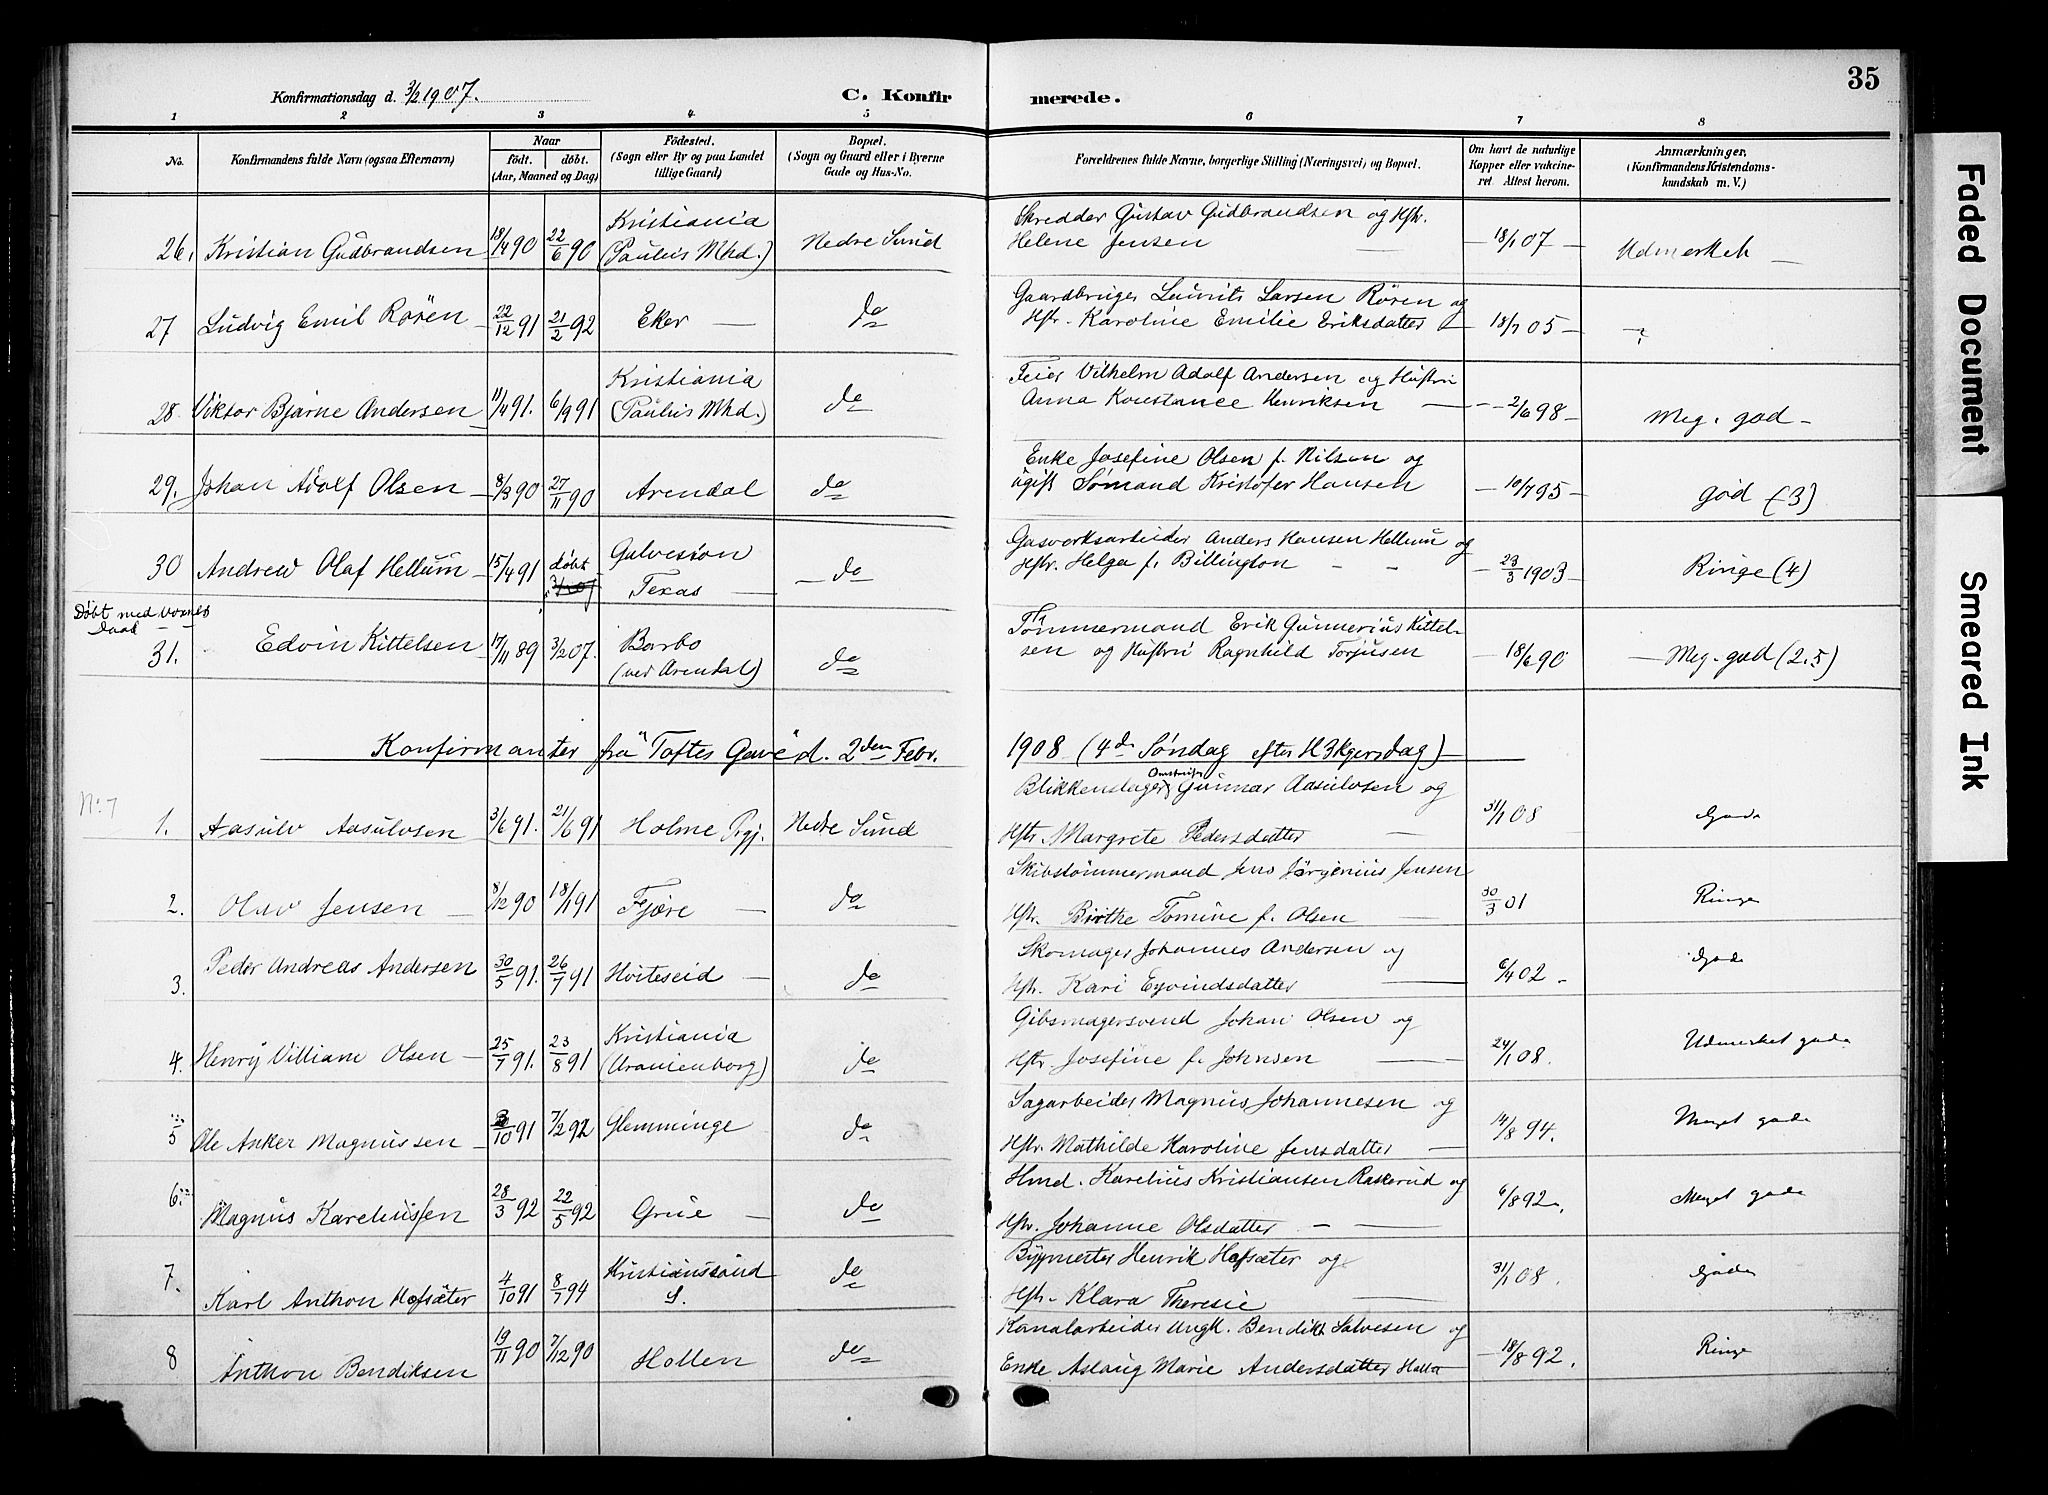 35
Konfirmationsdag d. 3/2 1907.
C. Konfirmerede.
1 2 3 4 5 6 7 8
No.
Konfirmandens fulde Navn (ogsaa Efternavn)
Naar
født. døbt.
(Aar, Maaned og Dag)
Födested.
(Sogn eller By og paa Landet
tillige Gaard)
Bopæl.
(Sogn og Gaard eller i Byerne
Gade og Hus-No.
Forældrenes fulde Navne, borgerlige Stilling (Næringsvei) og Bopæl.
Om havt de naturlige
Kopper eller vakcine-
ret Attest herom.
Anmærkninger,
(Konfirmandens Kristendoms-
kundskab m. V.)
26. Kristian Gudbrandsen 18/4 90 22/6 90 Kristiania (Paulus Mhd.) Nedre Sund Skredder Gustav Gudbrandsen og Hstr.
Helene Jensen — 18/1 07 — Udmerket —
27 Ludvig Emil Røren — 22/12 91 21/2 92 Eker — do Gaardbruger Laurits Larsen Røren og
Hstr. Karoline Emilie Eriksdatter — 18/7 05 —
28. Viktor Bjarne Andersen — 11/4 91. 6/9 91 Kristiania (Paulus Mhd.) do Feier Vilhelm Adolf Andersen og Hustru
Anna Konstance Henriksen — 2/6 98 — Meg. god —
29. Johan Adolf Olsen — 8/9 90 27/11 90 Arendal do Enke Josefine Olsen f. Nilsen og
ugift Sømand Kristofer Hansen — 10/7 95 — god (3)
30 Andrew Olaf Hellum — 15/4 91 døbt Galveston Texas — do Gasverksarbeider Anders Hansen Hellum og
Hstr. Helga f. Billington — 23/3 1903 — Ringe (4)
Døbt med Voxnes
Daab
31. Edvin Kittelsen 17/11 89 3/2 07. Barbo (ved Arendal) do Tømmermand Erik Gunnerius Kittel-
sen og Hustru Ragnhild Torjusen — 18/6 90 — Meg. god (2.5)
Konfirmanter fra "Toftes Gave" d. 2den Febr. 1908 (4de Søndag efter H3kgersdag)
No. 7
1. Aasulv Aasulvsen 3/6 91. 21/6 91 Holme Pgj. Nedre Sund Blikkenslager Gunnar Aasulvsen og
Hstr. Margrete Pedersdatter — 31/1 08 Gode
2. Olav Jensen — 8/12 90 18/1 91 Fjære — do Skibstømmermand Jens Jørgenius Jensen
Hstr. Birthe Tomine f. Olsen — 30/3 01 Ringe
3. Peder Andreas Andersen 30/5 91. 26/7 91 Hviteseid — do Skomager Johannes Andersen og
Hstr. Kari Eyvindsdatter — 6/4 02 — Gode
4. Henry Villiam Olsen — 25/7 91. 23/8 91 Kristiania (Uranienborg) do Gibsmagersvend Johan Olsen og
Hstr. Josefine f. Johnsen — 24/1 08. Udmerket gode
5 Ole Anker Magnussen — /10 91 7/2 92 Glemminge do Sagarbeider Magnus Johannesen og
Hstr. Mathilde Karoline Jensdatter — 14/8 94. Meget gode
6. Magnus Kareliussen 28/3 92 22/5 92 Grue — do Hmd. Karelius Kristiansen Raskerud og
Hstr. Johanne Olsdatter — 6/8 92. Meget gode
7. Karl Anthon Hofsæter 4/10 91 8/7 94 Kristianssund S. do Bygmester Henrik Hofsæter og
Hstr. Klara Theresie — 31/1 08. Gode
8 Anthon Bendiksen 19/11 90 7/12 90 Hollen do Kanalarbeider Ungk. Bendikt Salvesen og
Enke Aslaug Marie Andersdatter Holla — 18/8 92. Ringe
Faded Document
Smeared Ink